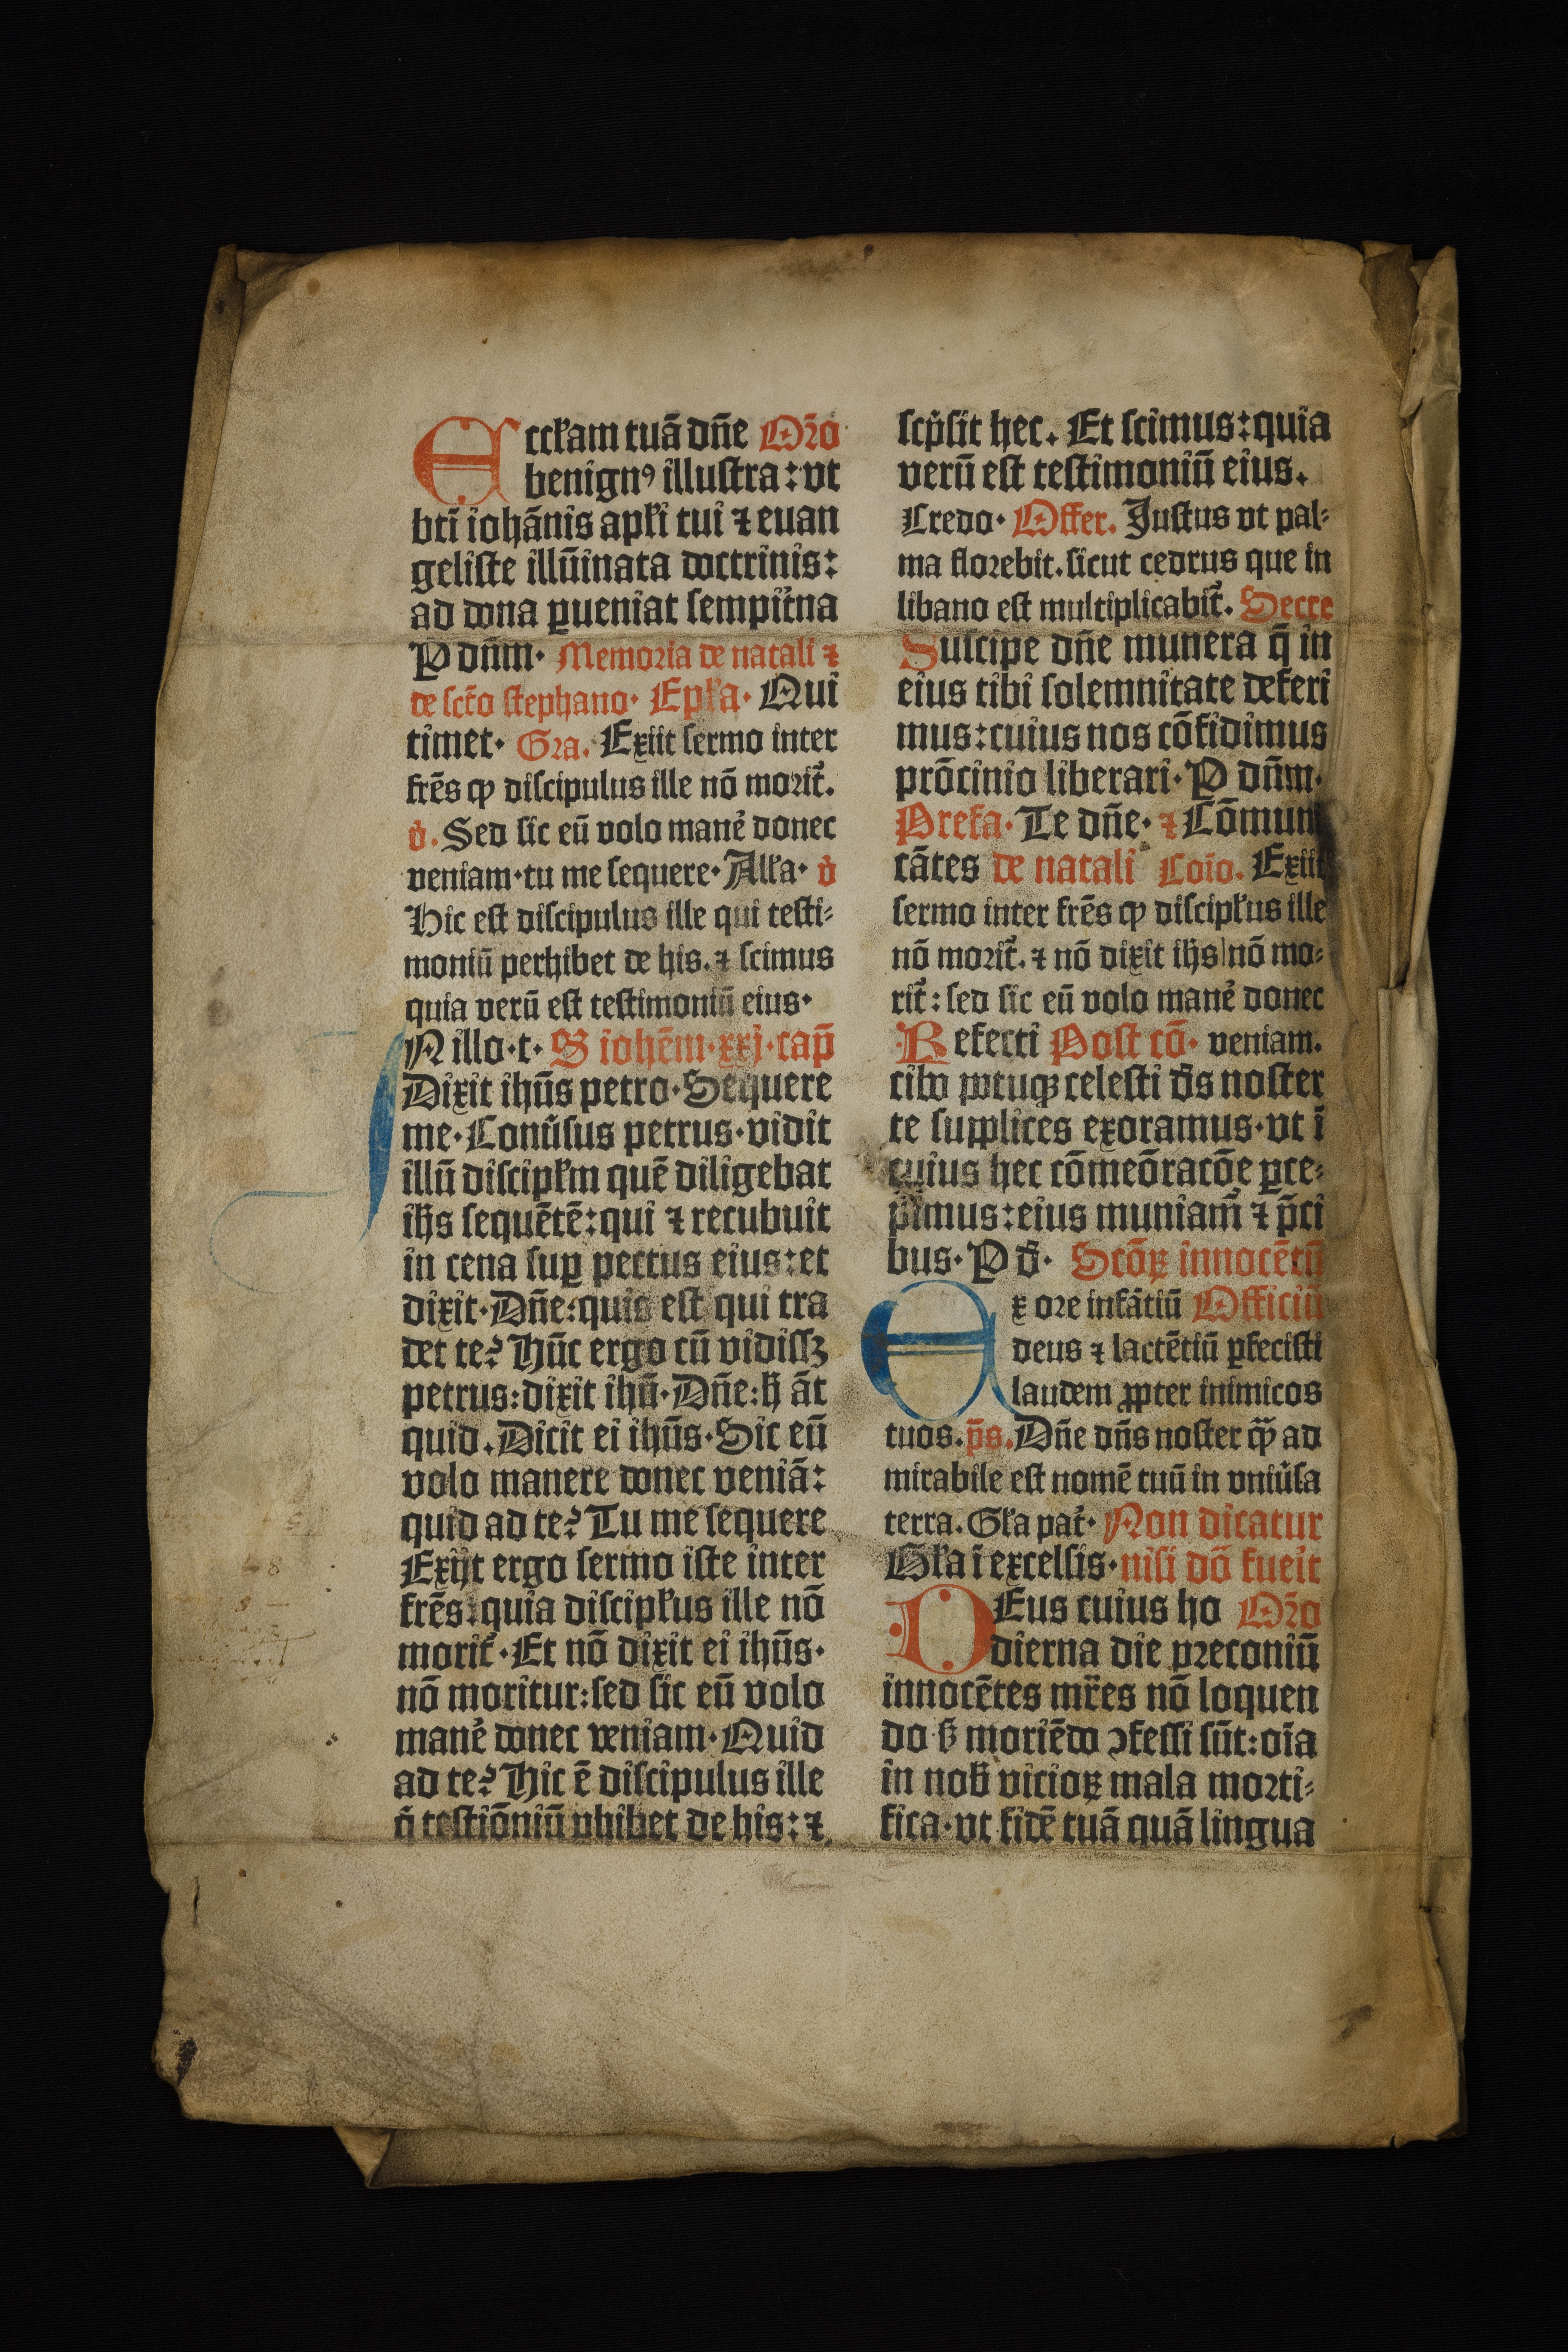 Eccłam tuā dn̄e Oꝛ̄o
benignꝰ illuſtra: vt
bt̄i iohānis apłi tui ⁊ euan
geliſte illūinata doctrinis:
ad dona ꝑueniat ſempit̄na
P dn̄m· Memoꝛia de natali ⁊
de ſcto ſtephano· Epła· Qui
timet· Gꝛa. Exiit ſermo inter
fr̄es ꝙ diſcipulus ille nō moꝛit᷑.
v̇. Sed ſic eū volo mane᷑ donec
veniam·tu me ſequere· Ałła· v̇
Hic eſt diſcipulus ille qui teſti⸗
moniū perhibet de his. ⁊ ſcimus
quia verū eſt teſtimoniū eius·
Nillo·t· S iohēm·xxj·cap̄
Dixit ihūs petro·Sequere
me·Conu̇ſus petrus·vidit
illū diſcipłm quē diligebat
ih̄s ſequētē:qui ⁊ recubuit
in cena ſuꝑ pectus eius:et
dixit·Dn̄e:quis eſt qui tra
det te? Hūc ergo cū vidiſſꝫ
petrus:dixit ihū·Dn̄e:h̄ āt
quid.Dicit ei ihūs·Sic eū
volo manere donec veniā:
quid ad te? Tu me ſequere
Exijt ergo ſermo iſte inter
fr̄es:quia diſciplus ille nō
morit᷑·Et nō dixit ei ihūs·
nō moritur:ſed ſic eū volo
mane᷑ donec veniam·Quid
ad te? Hic ē diſcipulus ille
q̇ teſtiōniū ꝑhibet de his: ⁊
ſcp̄ſit hec. Et ſcimus:quia
verū eſt teſtimoniū eius.
Credo· Offer. Juſtus vt pal⸗
ma floꝛebit.ſicut cedrus que in
libano eſt multiplicabit᷑. Secre
Suſcipe dn̄e munera q̄ in
eius tibi ſolemnitate deferi
mus:cuius nos cōfidimus
prōcinio liberari·P dn̄m·
Prefa· Te dn̄e· ⁊ Cōmuni
cātes de natali Coīo. Exiit
ſermo inter fr̄es ꝙ diſcipłus ille
nō moꝛit᷑. ⁊ nō dixit ih̄s nō mo⸗
rit᷑: ſed ſic eū volo mane᷑ donec
Refecti Poſt cō· veniam.
cibo potuqꝫ celeſti d̄s noſter
te ſupplices exoramus·vt ī
cuius hec cōmeōracōe ꝑce⸗
pimus:eius muniam᷑ ⁊ p̄ci
bus·P d̄· Scōꝝ innocētū
Ex oꝛe infātiū Officiū
deus ⁊ lactētiū ꝑfeciſti
laudem ꝓpter inimicos
tuos. p̄s. Dn̄e dn̄s noſter ꝙ̄ ad
mirabile eſt nomē tuū in vniu̇ſa
terra. Gła pat᷑· Non dicatur
Gła ī excelſis·niſi dō fueīt
DEus cuius ho Oꝛ̄o
dierna die pꝛeconiū
innocētes mr̄es nō loquen
do ẜ moriēdo ↄfeſſi ſūt:oīa
in nob̄ vicioꝝ mala moꝛti⸗
fica·vt fidē tuā quā lingua